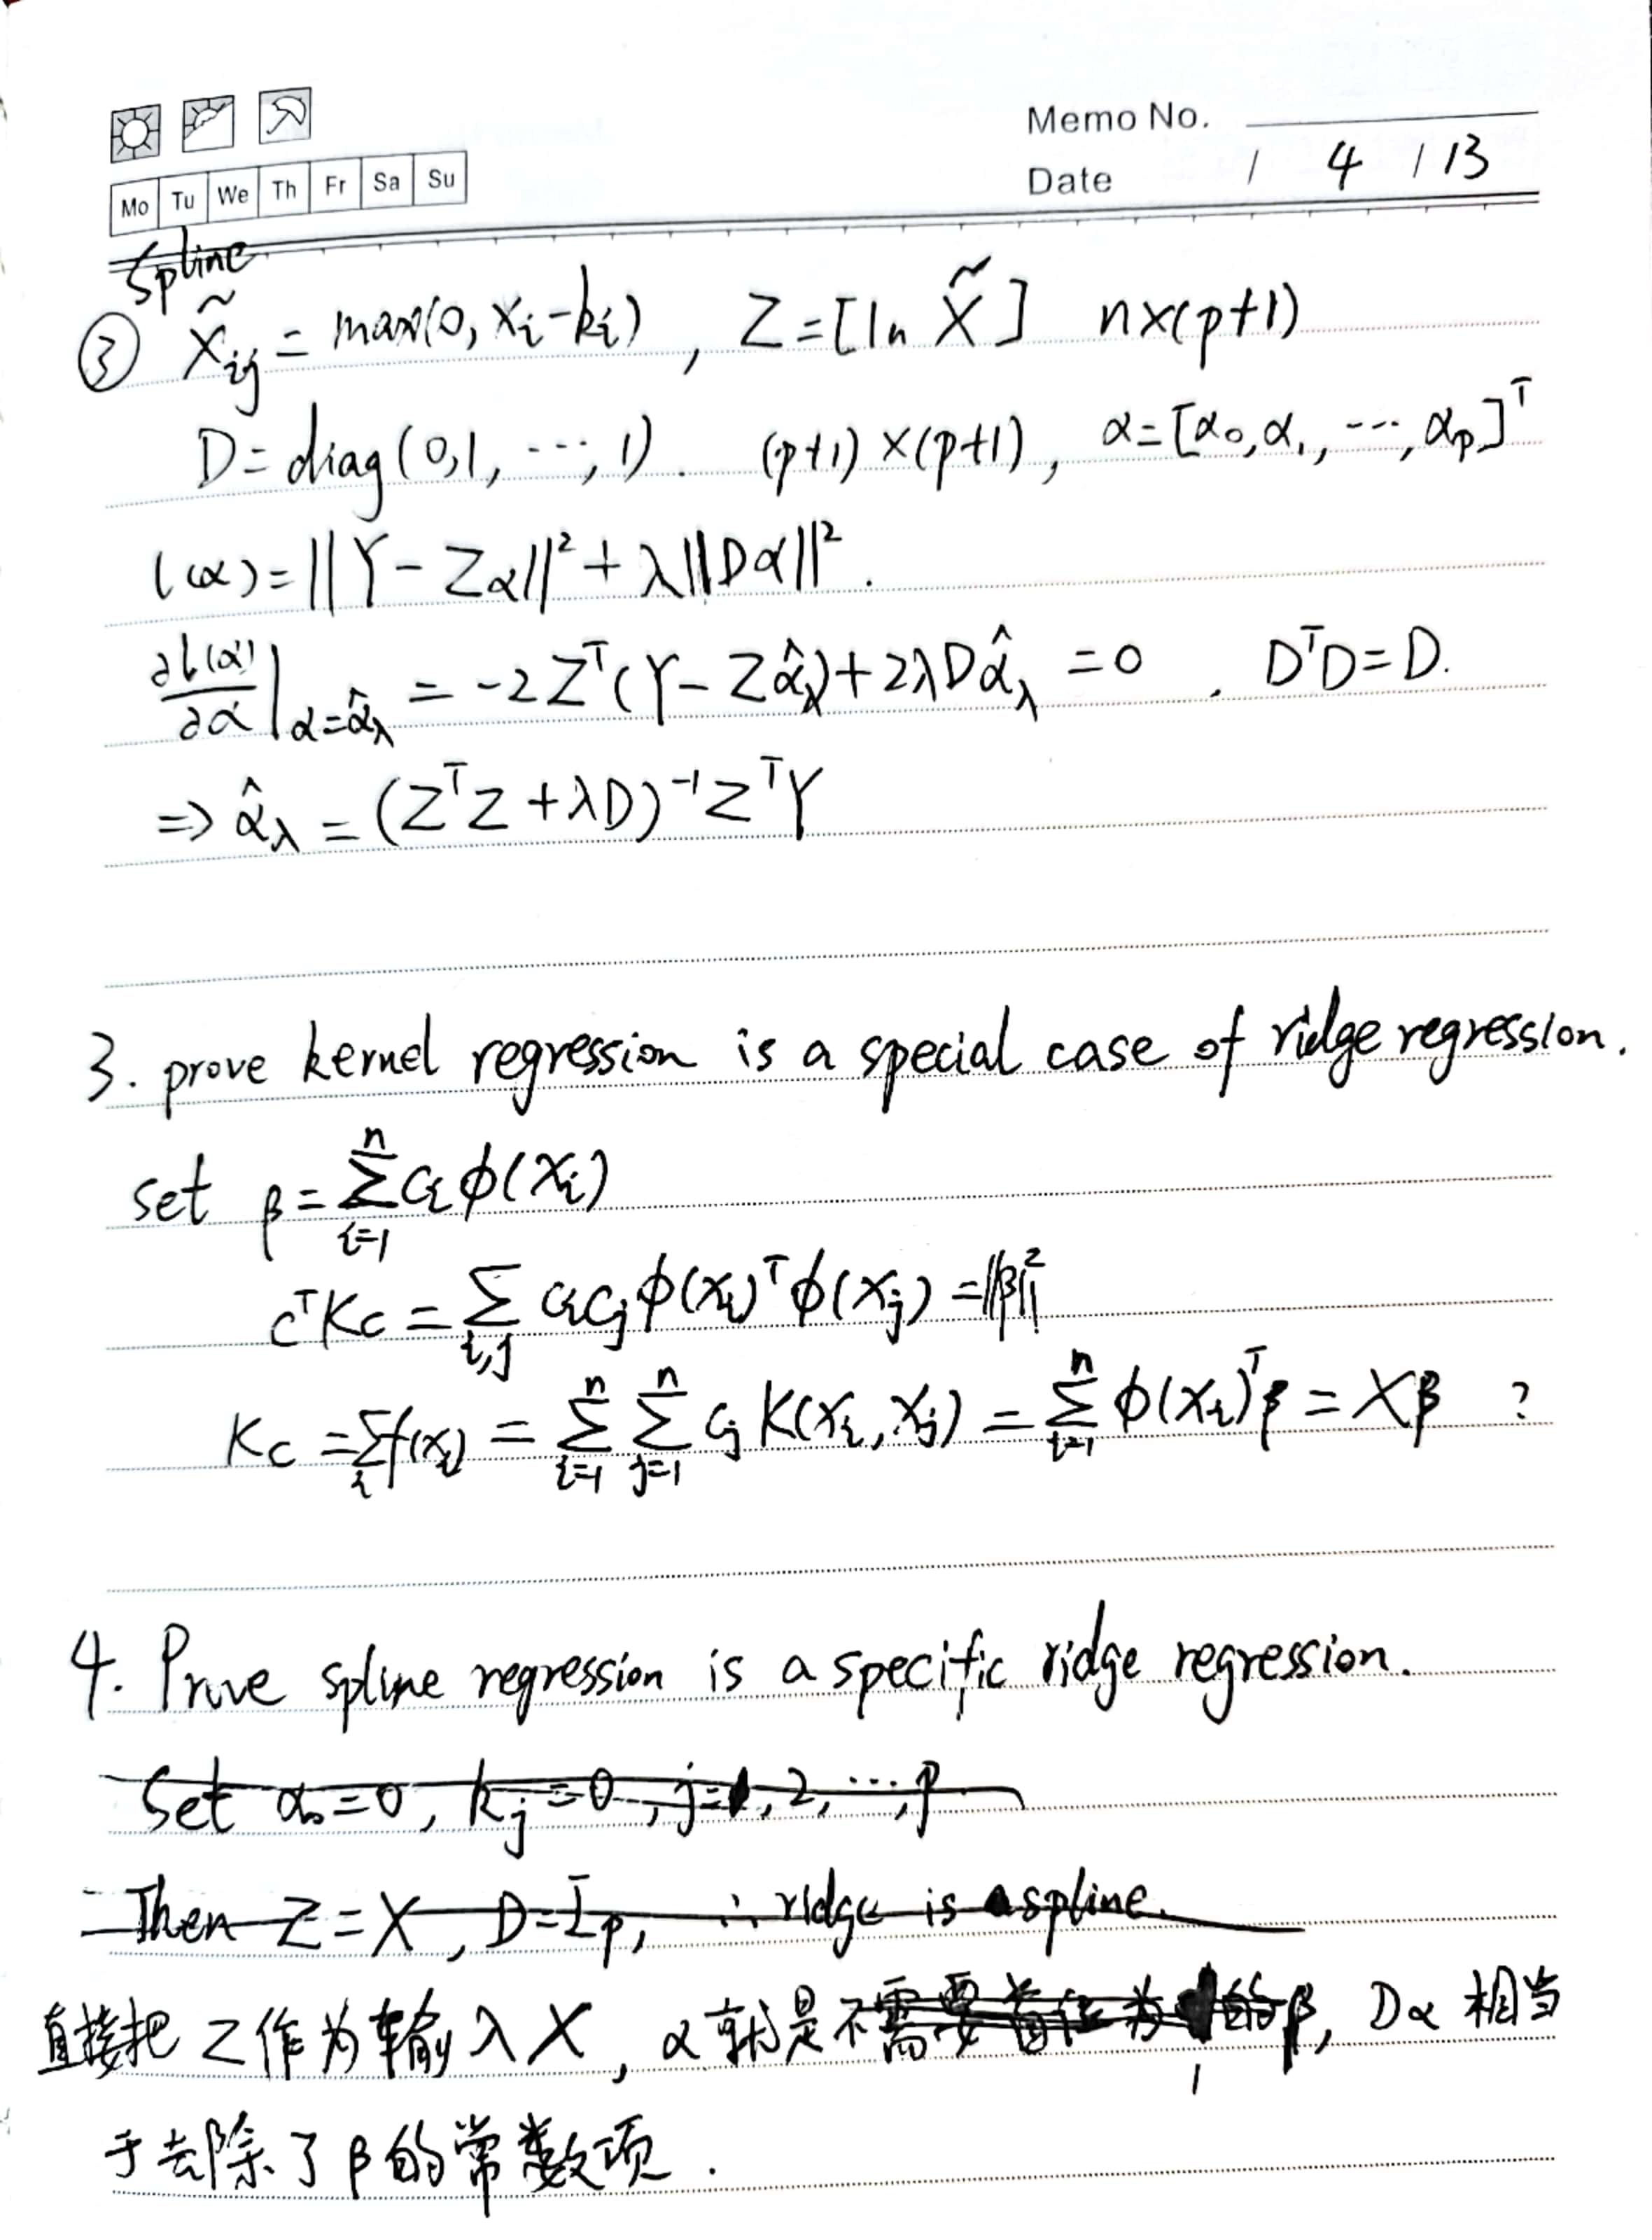 Memo No.
Mo Tu We Th Fr Sa Su
Date / 4 / 13
Spline
③ X̃ᵢⱼ = max(0, xᵢ - kᵢ) , Z = [1ₙ X̃] n×(p+1)
D = diag(0,1, ⋯, 1). (p+1)×(p+1), α = [α₀, α₁, ⋯, αₚ]ᵀ
l(α) = ||Y - Zα||² + λ||Dα||².
∂l(α)/∂α |α=α̂λ = -2Zᵀ(Y - Zα̂λ) + 2λDα̂λ = 0 . DᵀD = D.
⇒ α̂λ = (ZᵀZ + λD)⁻¹ZᵀY
3. prove kernel regression is a special case of ridge regression.
set β = Σⁿᵢ₌₁ cᵢ ϕ(xᵢ)
cᵀKc = Σᵢ,ⱼ cᵢcⱼ ϕ(xᵢ)ᵀϕ(xⱼ) = ||β||²
Kc = Σᵢ f(xᵢ) = Σⁿᵢ₌₁ Σⁿⱼ₌₁ cⱼ K(xᵢ, xⱼ) = Σⁿᵢ₌₁ ϕ(xᵢ)ᵀβ = Xβ ?
4. Prove spline regression is a specific ridge regression.
Set α₀ = 0, kⱼ = 0, j = 1, 2, ⋯, p
Then Z = X, D = Iₚ, ∴ ridge is a spline.
直接把 Z 作为输入 X, α 就是不需要首位为1的β, Dα 相当
于去除了 β 的常数项.